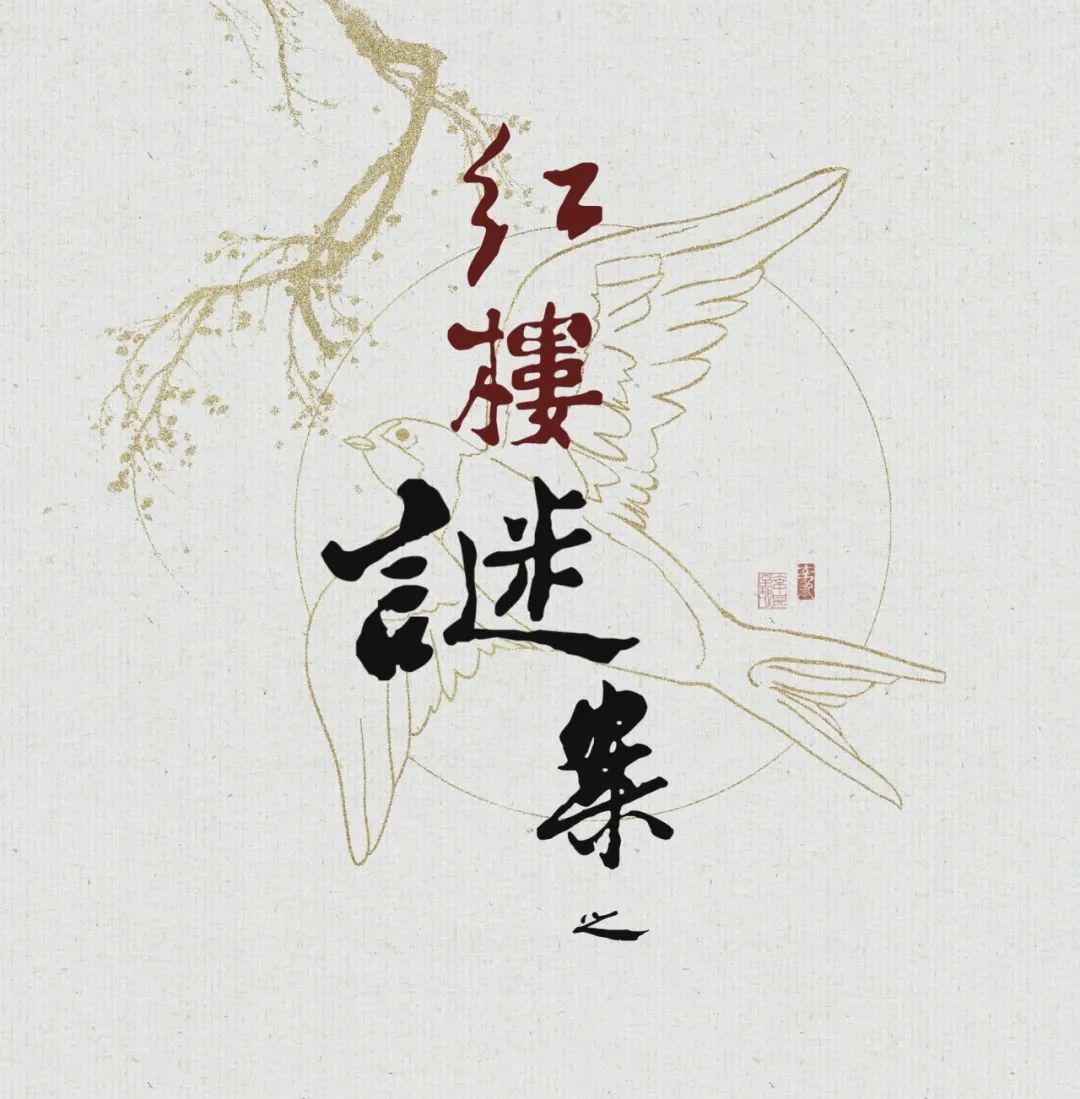 红
樓
謎
案
之